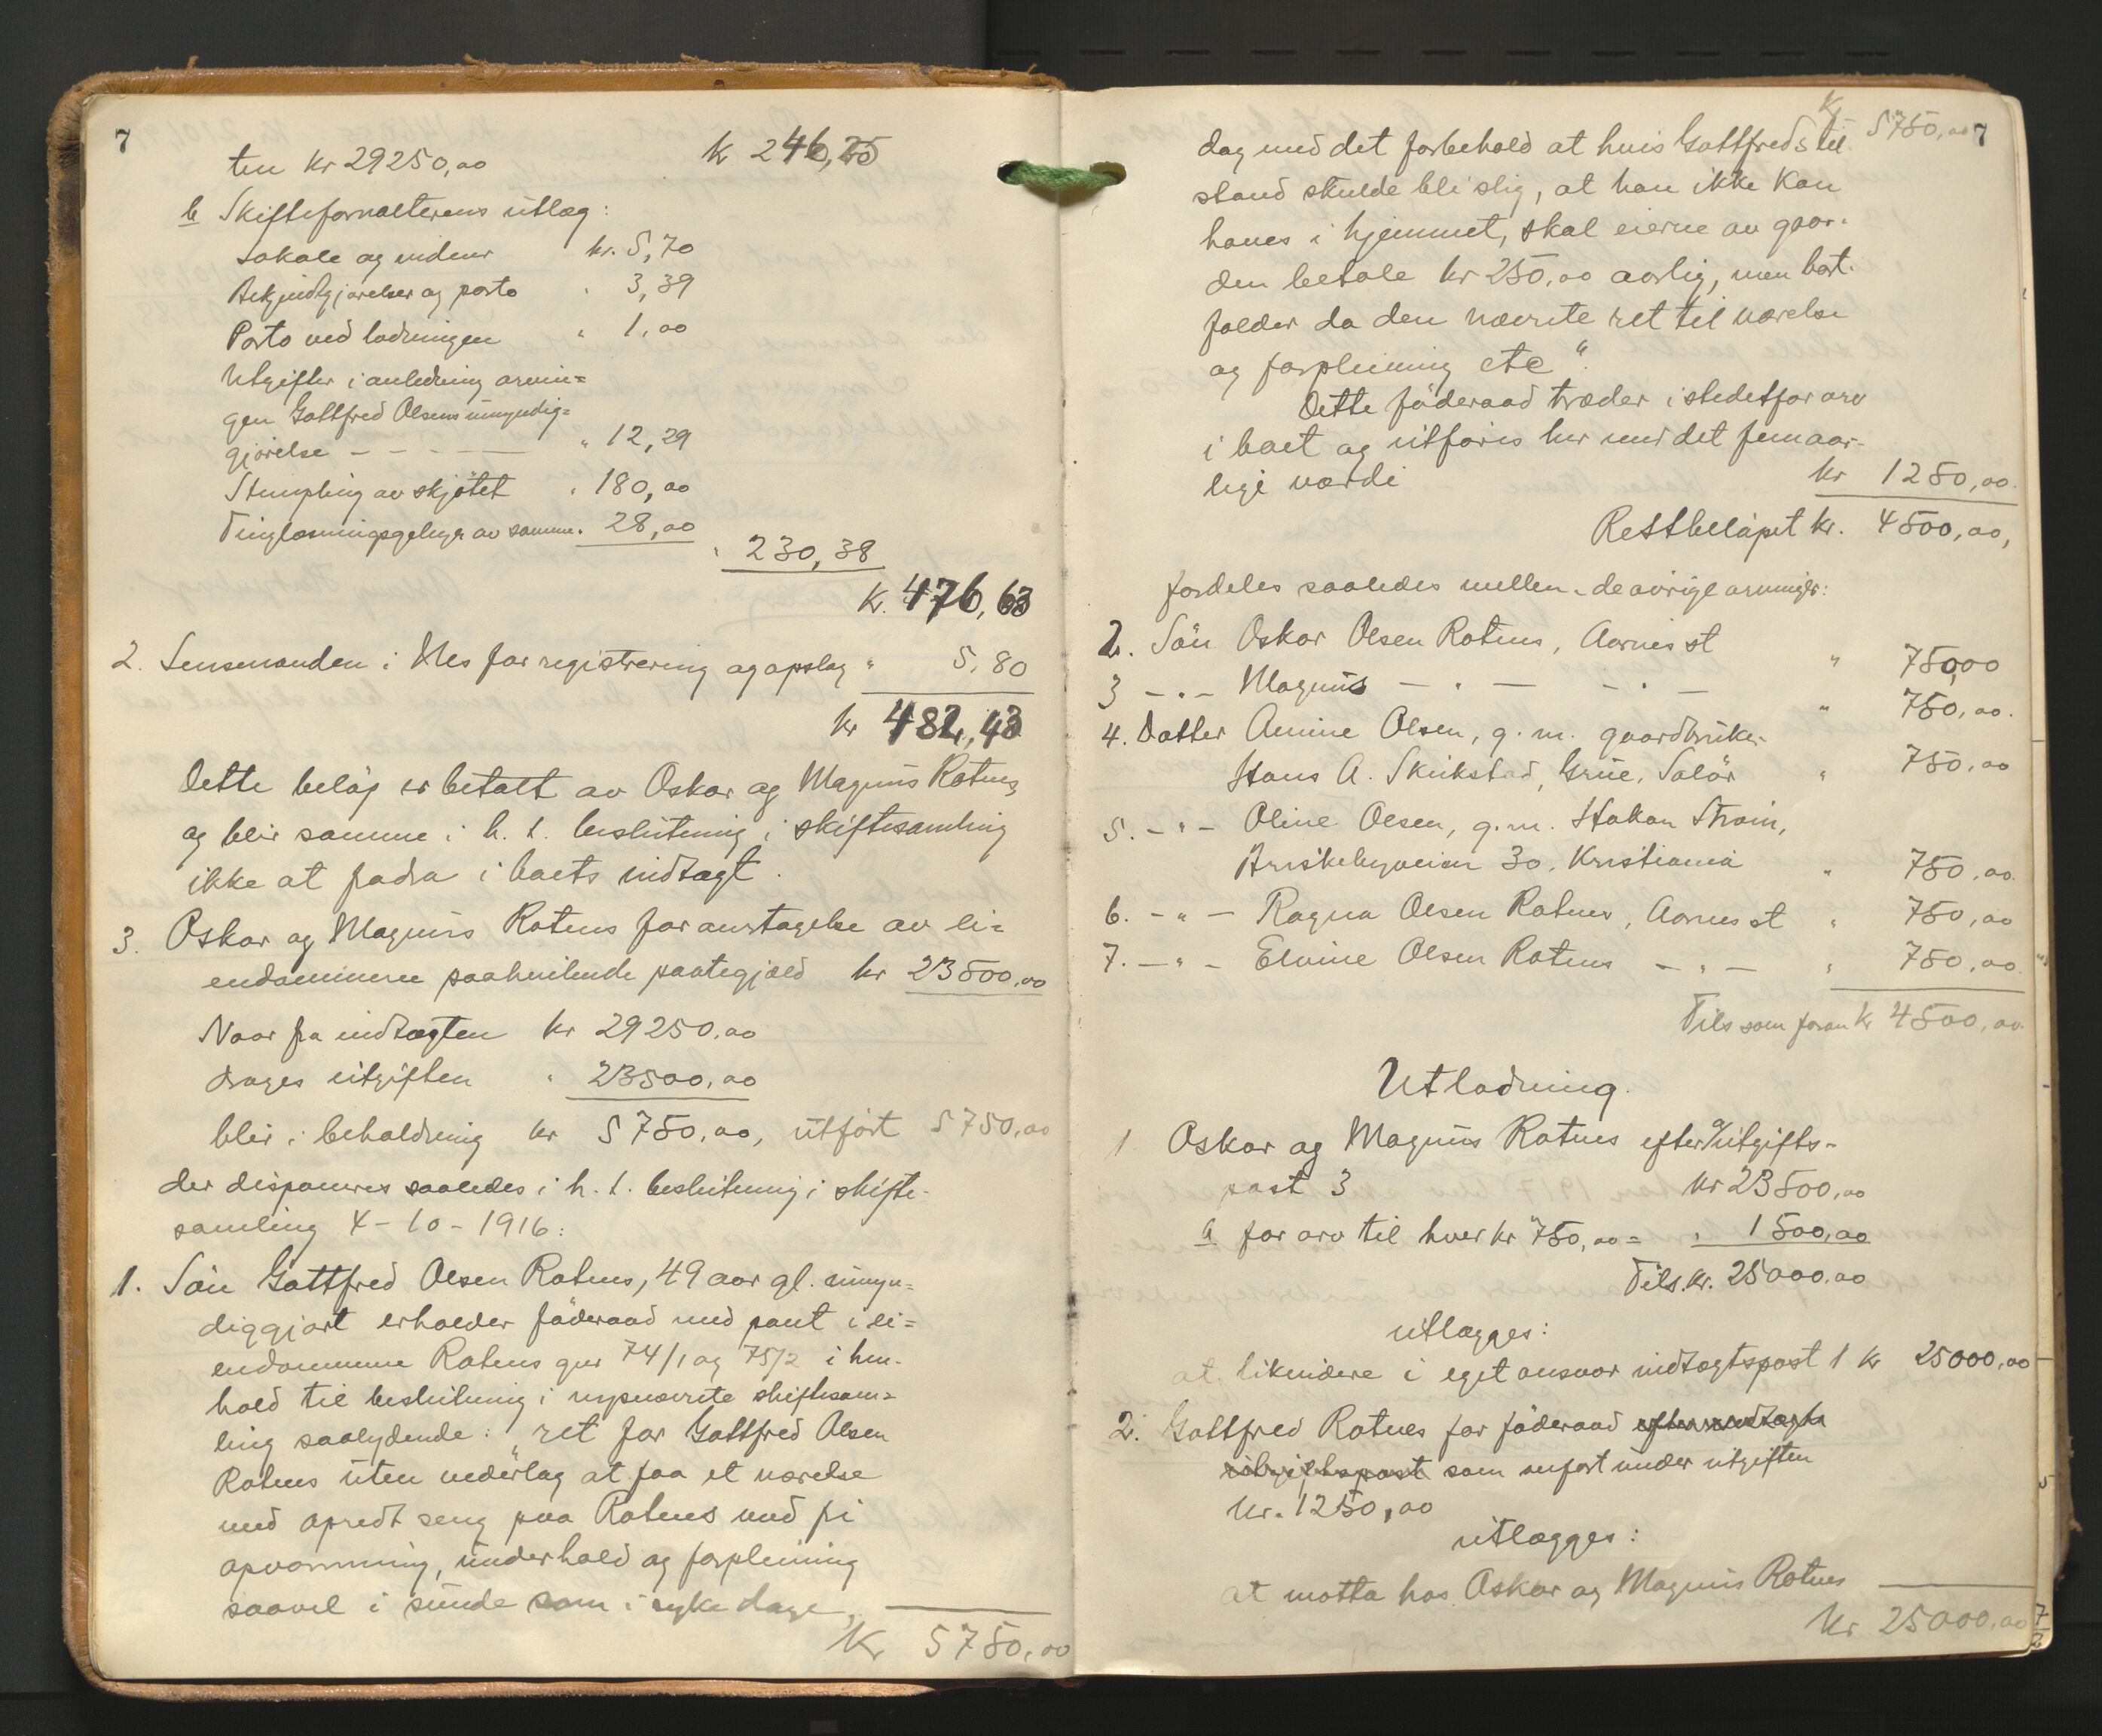 7
ten kr 29250,00 kr 246,25
b Skifteforvalterens utlæg:
Lokale og vidner kr. 5,70
Bekjendtgjørelser og porto " 3,39
Porto ved lodningen " 1,00
Utgifter i anledning arvin=
gen Gottfred Olsens umyndig=
gjörelse - - - - " 12,29
Stempling av skjötet " 180,00
Tinglæsningsgebyr av samme " 28,00
" 230,38
Kr. 476,63
2. Lensmanden i Nes for registrering og opslag " 5,80
kr 482,43
Dette belöp er betalt av Oskar og Magnus Rotnes
og blir samme i h. t. beslutning i skiftesamling
ikke at fordra i boets indtægt.
3. Oskar og Magnus Rotnes for overtagelse av ei=
endommene paahvilende pantegjæld kr 23500,00
Naar fra indtægten kr 29250,00
drages utgiften " 23500,00
blir i beholdning kr 5750,00, utfört 5750,00
der disponeres saaledes i h. t. beslutning i skifte-
samling 4-10-1916:
1. Sön Gottfred Olsen Rotnes, 49 aar gl. umyn=
diggjort erholder föderaad med pant i ei=
endommene Rotnes gnr 74/1 og 75/2 i hen-
hold til beslutning i nysnævnte skiftesam=
ling saalydende: "ret for Gottfred Olsen
Rotnes uten vederlag at faa et værelse
med opredt seng paa Rotnes med fri
opvarmning, underhold og forpleining
saavel i sunde som i syke dage,
Kr 5750,00
Kr 5750,00 7
dog med det forbehold at hvis Gottfreds til-
stand skulde bli slig, at han ikke kan
haves i hjemmet, skal eierne av gaar-
den betale kr 250,00 aarlig, men bort-
falder da den nævnte ret til værelse
og forpleining etc".
Dette föderaad træder i stedet for arv
i boet og utföres her med det femaar-
lige værdi kr 1250,00.
Restbelöpet kr. 4500,00,
fordeles saaledes mellem de övrige arvinger:
2. Sön Oskar Olsen Rotnes, Aarnes st " 750,00
3 -"- Magnus -"- -"- " 750,00.
4. Datter Annine Olsen, g.m. gaardbruker
Hans A. Skulstad, Grue, Solör " 750,00
5. -"- Oline Olsen, g.m. Hakon Ström,
Briskebyveien 30, Kristiania " 750,00.
6. -"- Ragna Olsen Rotnes, Aarnes st " 750,00
7. -"- Elvine Olsen Rotnes -"- " 750,00.
Tils som foran kr 4500,00.
Utlodning.
1 Oskar og Magnus Rotnes efter a/ utgifts-
post 3 kr 23500,00
b for arv til hver kr 750,00 = " 1500,00
Tils. kr. 25000,00
utlægges:
at likvidere i eget ansvar indtægtspost 1 kr 25000,00
2. Gottfred Rotnes for föderaad efter indtægts
utgiftspost som anfört under utgiften
kr. 1250,00
utlægges:
at motta hos Oskar og Magnus Rotnes
Kr 25000,00